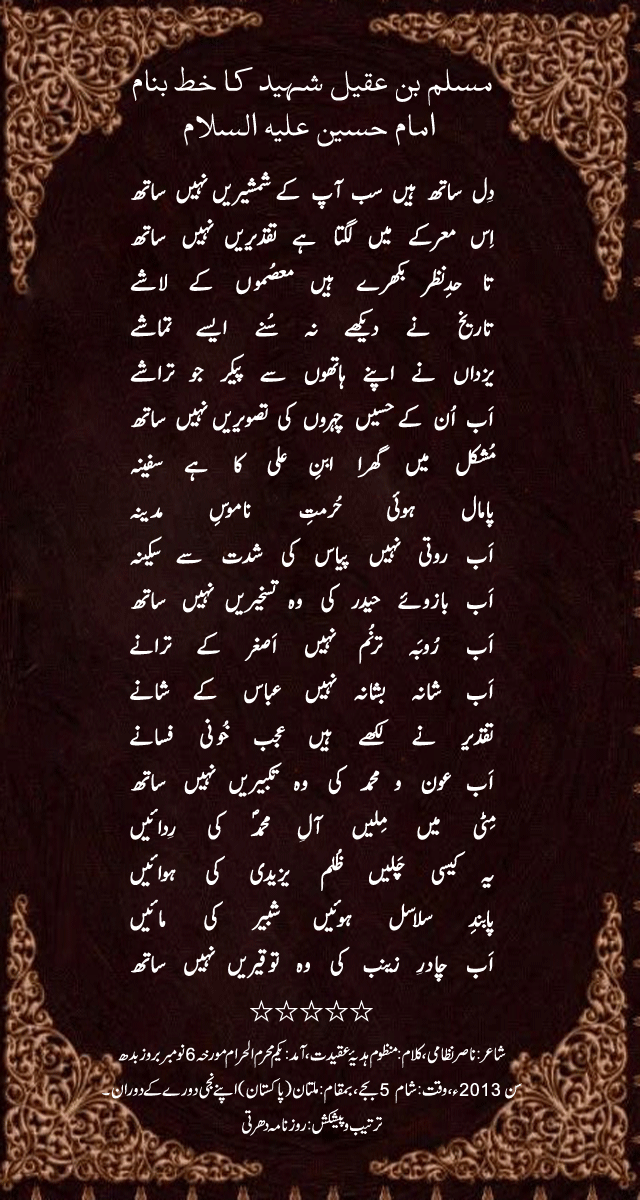 مسلم بن عقیل شہید کا خط بنام
امام حسین علیہ السلام
دِل ساتھ ہیں سب آپ کے شمشیریں نہیں ساتھ
اِس معرکے میں لگتا ہے تقدیریں نہیں ساتھ
تا حدِنظر بکھرے ہیں معصُموں کے لاشے
تاریخ نے دیکھے نہ سُنے ایسے تماشے
یزداں نے اپنے ہاتھوں سے پیکر جو تراشے
اَب اُن کے حسیں چہروں کی تصویریں نہیں ساتھ
مُشکل میں گھرا ابنِ علی کا ہے سفینہ
پامال ہوئی حُرمتِ ناموسِ مدینہ
اَب روتی نہیں پیاس کی شدت سے سکینہ
اَب بازوئے حیدر کی وہ تسخیریں نہیں ساتھ
اَب رُوبَہ ترنُم نہیں اَصغر کے ترانے
اَب شانہ بشانہ نہیں عباس کے شانے
تقدیر نے لکھے ہیں عجب خُونی فسانے
اَب عون و محمد کی وہ تکبیریں نہیں ساتھ
مِٹی میں مِلیں آلِ محمدؐ کی رِدائیں
یہ کیسی چَلیں ظُلمِ یزیدی کی ہوائیں
پابندِ سلاسل ہوئیں شبیر کی مائیں
اَب چادرِ زینب کی وہ توقیریں نہیں ساتھ
☆☆☆☆☆
شاعر:ناصر نظامی،کلام:منظوم ہدیۂ عقیدت،آمد:یکم محرم الحرام مورخہ 6 نومبر بروز بدھ
سن 2013ء،وقت:شام 5 بجے،بمقام:ملتان(پاکستان)اپنے نجی دورے کے دوران۔
ترتیب و پیشکش:روزنامہ دھرتی